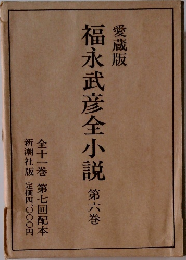 愛蔵版
福永武彦全小説 第六巻
全十一巻 第七回配本
新潮社版 定価四〇〇〇円